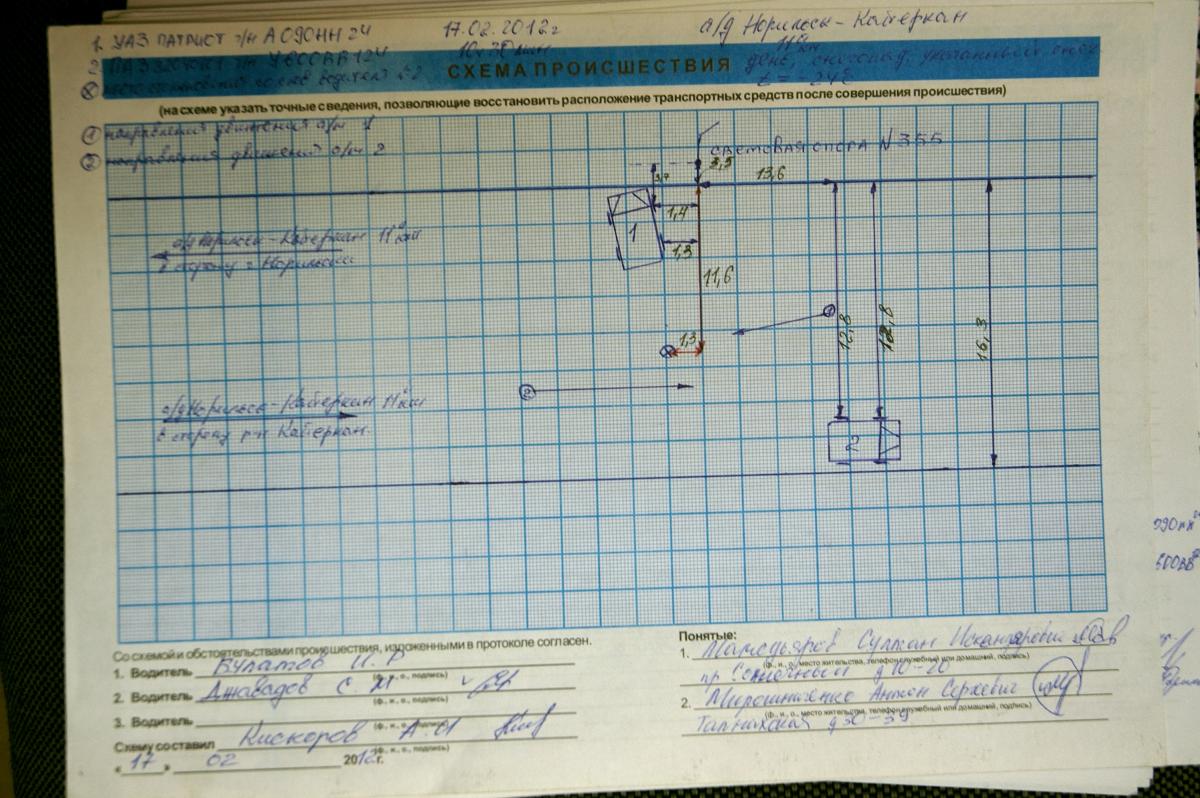 1. УАЗ ПАТРИОТ г/н А 090 НН 24 17.02.2012г а/д Норильск - Кайеркан
2. ПАЗ г/н 10.30 мин 11й км
со слов водителя №2 СХЕМА ПРОИСШЕСТВИЯ день, снегопад, t = -24°
(на схеме указать точные сведения, позволяющие восстановить расположение транспортных средств после совершения происшествия)
① направления движения а/м 1
② направления движения а/м 2
СВЕТОВАЯ ОПОРА N 355
3,5
13,6
1,4
1
1,3
11,6
а/д Норильск - Кайеркан 11й км
в сторону г Норильска
1
1,3
12,8
12,8
16,3
2
а/д Норильск - Кайеркан 11й км
в сторону р-н Кайеркан.
2
Со схемой и обстоятельствами происшествия, изложенными в протоколе согласен.
1. Водитель Булатов И. Р
(ф., и., о., подпись)
2. Водитель Джавадов С. М
(ф., и., о., подпись)
3. Водитель
(ф., и., о., подпись)
Схему составил Кискоров А. И
(ф., и., о., подпись)
« 17 » 02 2012г.
Понятые:
1. Мамедьяров Султан Искандярович
(ф., и., о., место жительства, телефон служебный или домашний, подпись)
пр Солнечный д 10-20
2. Мирошниченко Антон Сергеевич
(ф., и., о., место жительства, телефон служебный или домашний, подпись)
Талнахская д 50-39